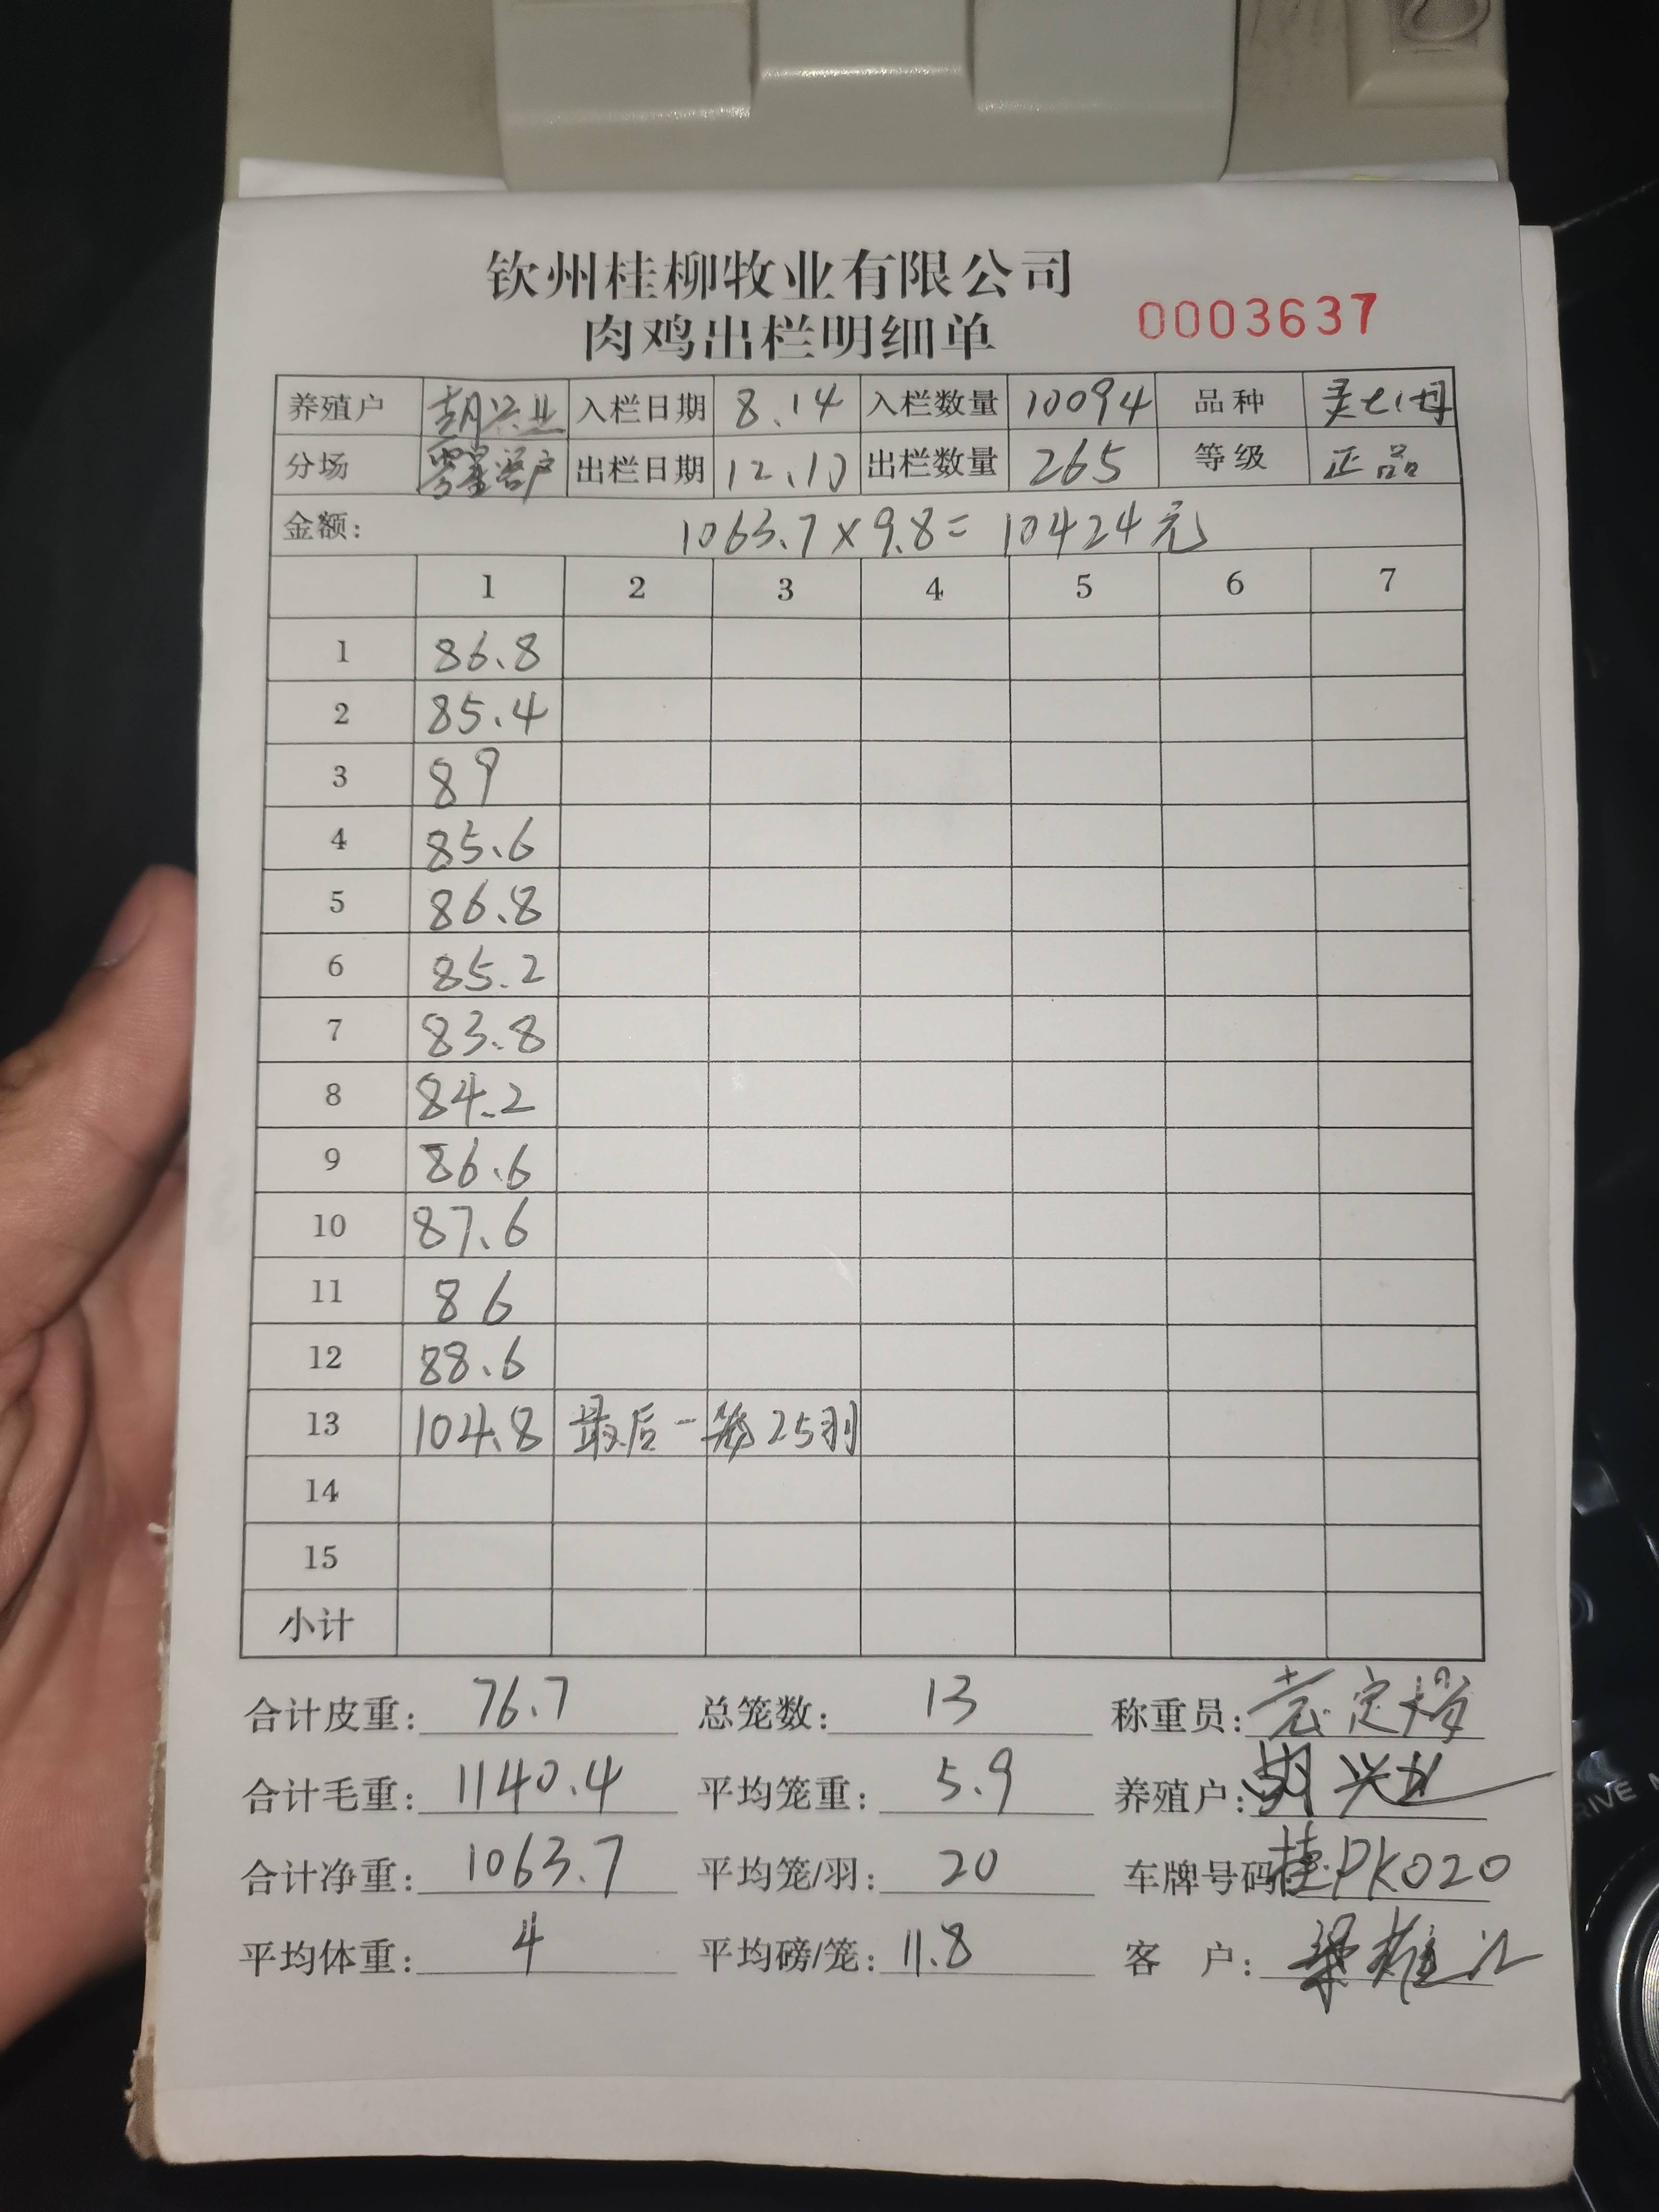 钦州桂柳牧业有限公司
肉鸡出栏明细单
0003637
养殖户 胡兴业 入栏日期 8.14 入栏数量 10094 品种
分场 零星客户 出栏日期 12.10 出栏数量 265 等级 正品
金额: 1063.7×9.8=10424元
1 2 3 4 5 6 7
1 86.8
2 85.4
3 89
4 85.6
5 86.8
6 85.2
7 83.8
8 84.2
9 86.6
10 87.6
11 86
12 88.6
13 104.8 最后一笼25羽
14
15
小计
合计皮重: 76.7 总笼数: 13 称重员:
合计毛重: 1140.4 平均笼重: 5.9 养殖户: 胡兴业
合计净重: 1063.7 平均笼/羽: 20 车牌号码: 桂PK020
平均体重: 4 平均磅/笼: 11.8 客 户: 梁雄